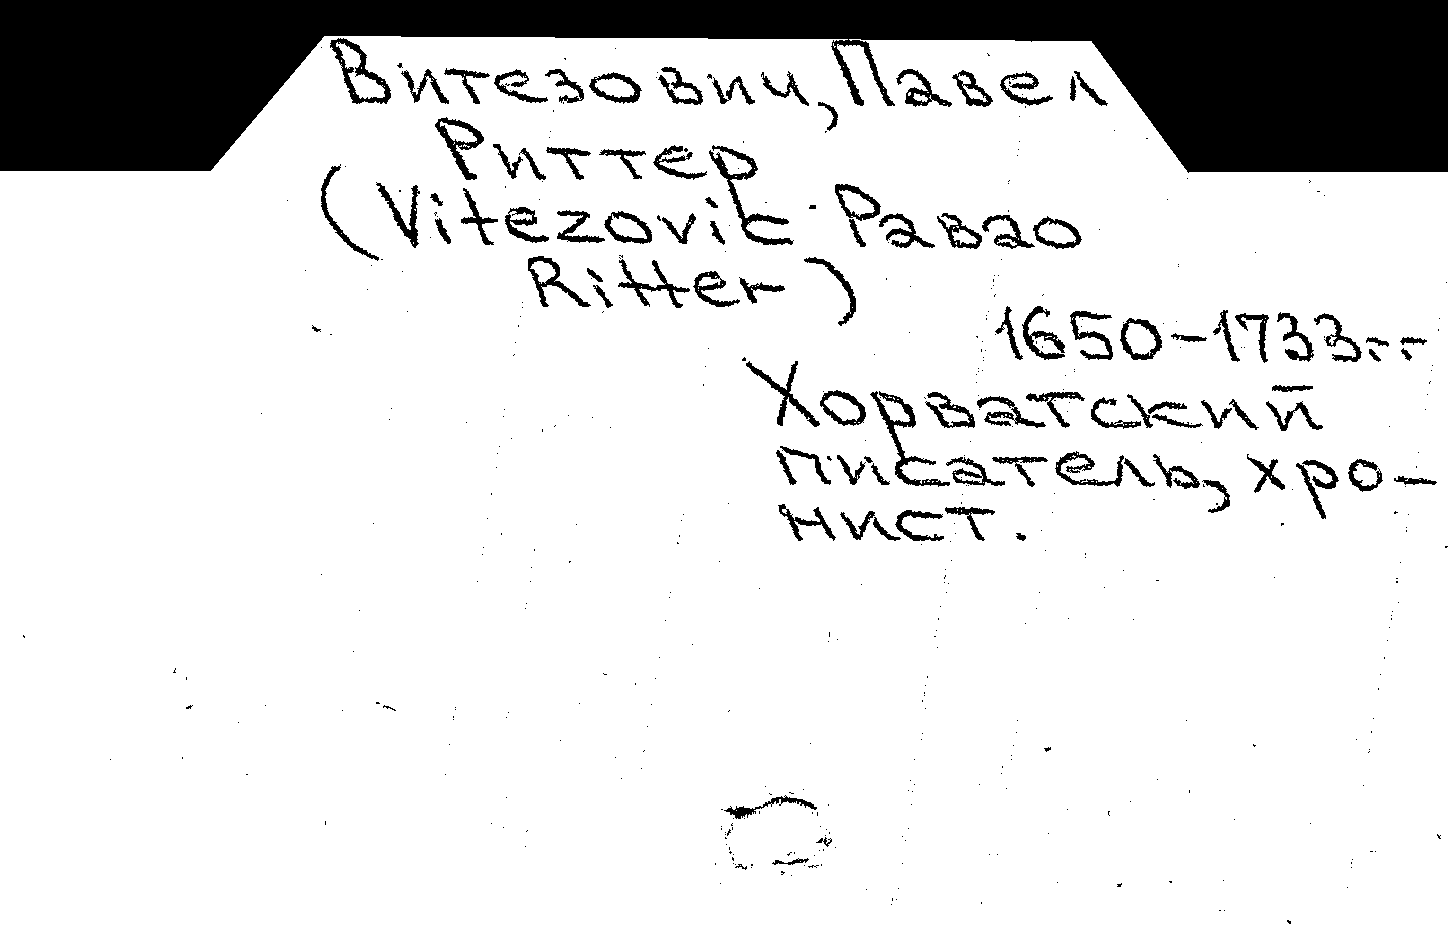 Витезович, Павел
Риттер
(Vitezovic Pавао
Ritter)
1650-1733гг
Хорватский
писатель, хро-
нист.